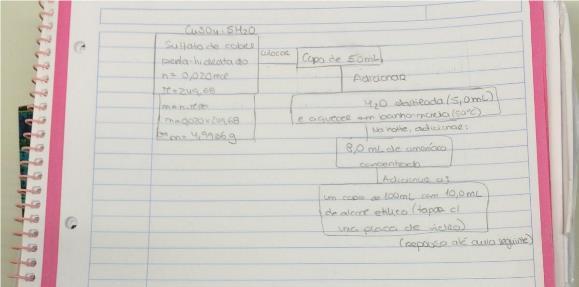 CuSO4.5H2O
Sulfato de cobre
penta-hidratado
n= 0,020mol
M=249,68
m=n.M
m=0,020x249,68
m= 4,9936g
colocar
Copo de 50mL
Adicionar
H2O destilada (5,0mL)
e aquecer em banho-maria (50ºC)
Na hotte, adicionar:
8,0 mL de amoníaco
concentrado
Adicionar a:
um copo de 100mL com 10,0mL
de álcool etílico (tapar c/
uma placa de vidro)
(repouso até aula seguinte)